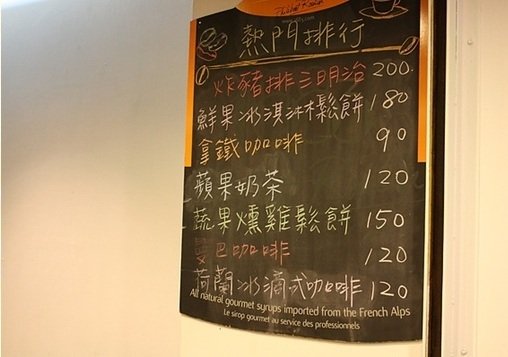 熱門排行
炸豬排三明治 200
鮮果冰淇淋鬆餅 180
拿鐵咖啡 90
蘋果奶茶 120
蔬果燻雞鬆餅 150
曼巴咖啡 120
荷蘭冰滴式咖啡 120
All natural gourmet syrups imported from the French Alps
Le sirop gourmet au service des professionnels